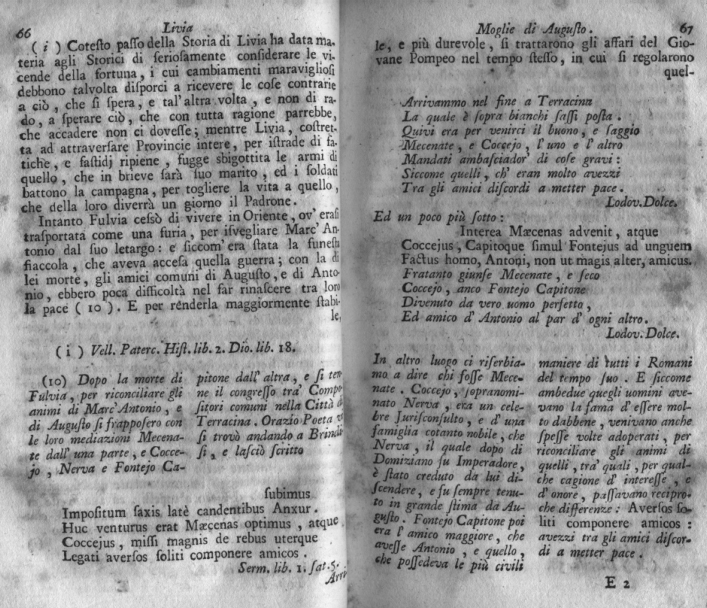 66 Livia
( i ) Cotesto passo della Storia di Livia ha data ma-
teria agli Storici di seriosamente considerare le vi-
cende della fortuna, i cui cambiamenti maravigliosi
debbono talvolta disporci a ricevere le cose contrarie
a ciò, che si spera, e tal'altra volta, e non di ra-
do, a sperare ciò, che con tutta ragione parrebbe,
che accadere non ci dovesse; mentre Livia, costret-
ta ad attraversare Provincie intere, per istrade di fa-
tiche, e fastidj ripiene, fugge sbigottita le armi di
quello, che in brieve sarà suo marito, ed i soldati
battono la campagna, per togliere la vita a quello,
che della loro diverrà un giorno il Padrone.
Intanto Fulvia cessò di vivere in Oriente, ov' erasi
trasportata come una furia, per isvegliare Marc' An-
tonio dal suo letargo: e siccom' era stata la funesta
fiaccola, che aveva accesa quella guerra; con la di
lei morte, gli amici comuni di Augusto, e di Anto-
nio, ebbero poca difficoltà nel far rinascere tra loro
la pace ( 10 ). E per renderla maggiormente stabi-
le,
( i ) Vell. Paterc. Hist. lib. 2. Dio. lib. 18.
(10) Dopo la morte di
Fulvia, per riconciliare gli
animi di Marc' Antonio, e
di Augusto si frapposero con
le loro mediazioni Mecena-
te dall' una parte, e Cocce-
jo, Nerva e Fontejo Ca-
pitone dall' altra, e si ten-
ne il congresso tra' Compo-
sitori comuni nella Città di
Terracina. Orazio Poeta vi
si trovò andando a Brindi-
si, e lasciò scritto
subimus
Impositum saxis latè candentibus Anxur.
Huc venturus erat Mæcenas optimus, atque
Coccejus, missi magnis de rebus uterque
Legati aversos soliti componere amicos.
Serm. lib. 1. sat. 5.
Arri-
Moglie di Augusto. 67
le, e più durevole, si trattarono gli affari del Gio-
vane Pompeo nel tempo stesso, in cui si regolarono
quel-
Arrivammo nel fine a Terracina
La quale è sopra bianchi sassi posta.
Quivi era per venirci il buono, e saggio
Mecenate, e Coccejo, l' uno e l' altro
Mandati ambasciador' di cose gravi:
Siccome quelli, ch' eran molto avezzi
Tra gli amici discordi a metter pace.
Lodov. Dolce.
Ed un poco più sotto:
Interea Mæcenas advenit, atque
Coccejus, Capitoque simul Fontejus ad unguem
Factus homo, Antoni, non ut magis alter, amicus.
Fratanto giunse Mecenate, e seco
Coccejo, anco Fontejo Capitone
Divenuto da vero uomo perfetto,
Ed amico d' Antonio al par d' ogni altro.
Lodov. Dolce.
In altro luogo ci riserbia-
mo a dire chi fosse Mece-
nate. Coccejo, sopranomi-
nato Nerva, era un cele-
bre Jurisconsulto, e d' una
famiglia cotanto nobile, che
Nerva, il quale dopo di
Domiziano fu Imperadore,
è stato creduto da lui di-
scendere, e fu sempre tenu-
to in grande stima da Au-
gusto. Fontejo Capitone poi
era l' amico maggiore, che
avesse Antonio, e quello,
che possedeva le più civili
maniere di tutti i Romani
del tempo suo. E siccome
ambedue quegli uomini ave-
vano la fama d' essere mol-
to dabbene, venivano anche
spesse volte adoperati, per
riconciliare gli animi di
quelli, tra' quali, per qual-
che cagione d' interesse, e
d' onore, passavano recipro-
che differenze: Aversos so-
liti componere amicos:
avezzi tra gli amici discor-
di a metter pace.
E 2